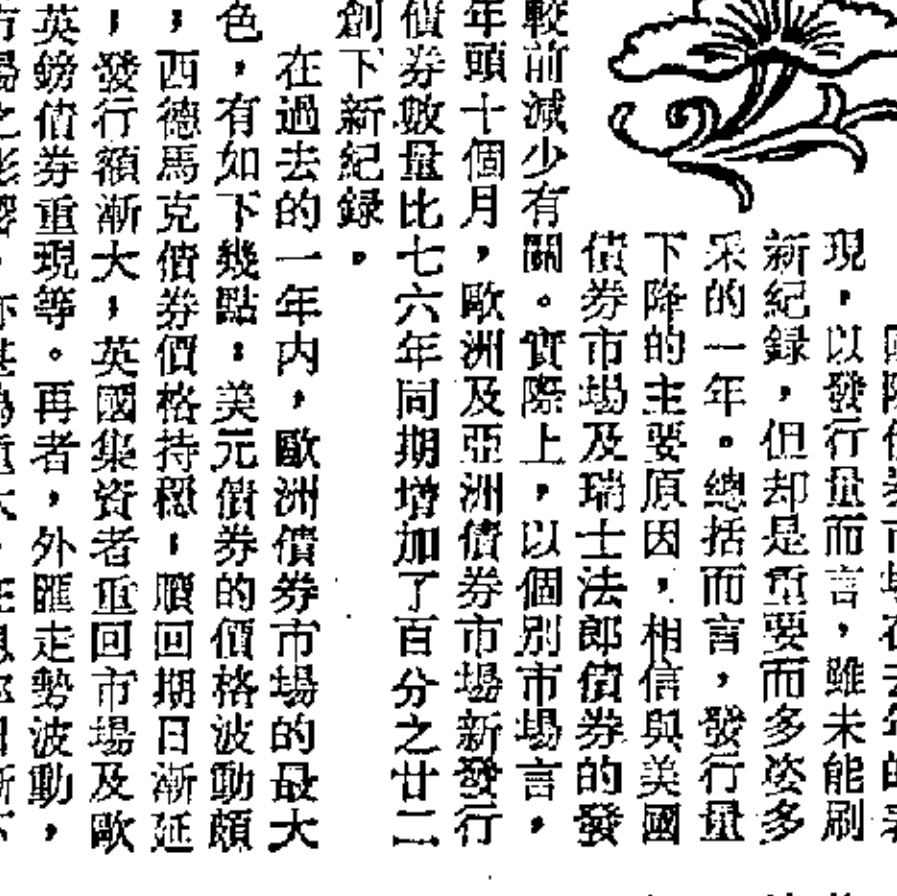 國際債券市場在去年的表
現，以發行量而言，雖未能刷
新紀錄，但却是重要而多姿多
采的一年。總括而言，發行量
下降的主要原因，相信與美國
債券市場及瑞士法郎債券的發
較前減少有關。實際上，以個別市場言，
年頭十個月，歐洲及亞洲債券市場新發行
債券數量比七六年同期增加了百分之廿二
創下新紀錄。
在過去的一年内，歐洲債券市場的最大
色，有如下幾點：美元債券的價格波動頗
，西德馬克債券價格持穩，贖回期日漸延
，發行額漸大，英國集資者重回市場及歐
英鎊債券重現等。再者，外匯走勢波動，